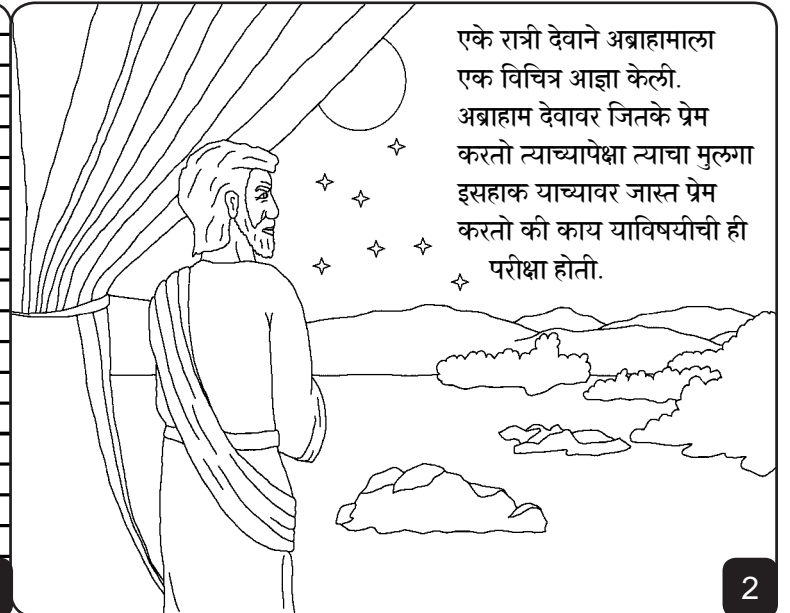 एके रात्री देवाने अब्राहामाला
एक विचित्र आज्ञा केली.
अब्राहाम देवावर जितके प्रेम
करतो त्याच्यापेक्षा त्याचा मुलगा
इसहाक याच्यावर जास्त प्रेम
करतो की काय याविषयीची ही
परीक्षा होती.
2